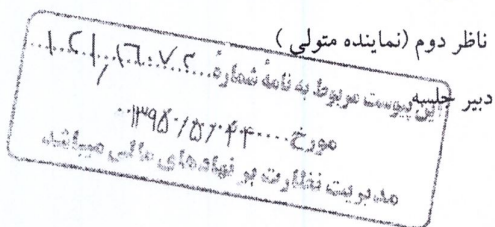 ناظر دوم (نماینده متولی )
دبیر جلسه
این پیوست مربوط به نامهٔ شمارهٔ
مورخ ۱۳۹۵/۵/
مدیریت نظارت بر نهادهای مالی میباشد